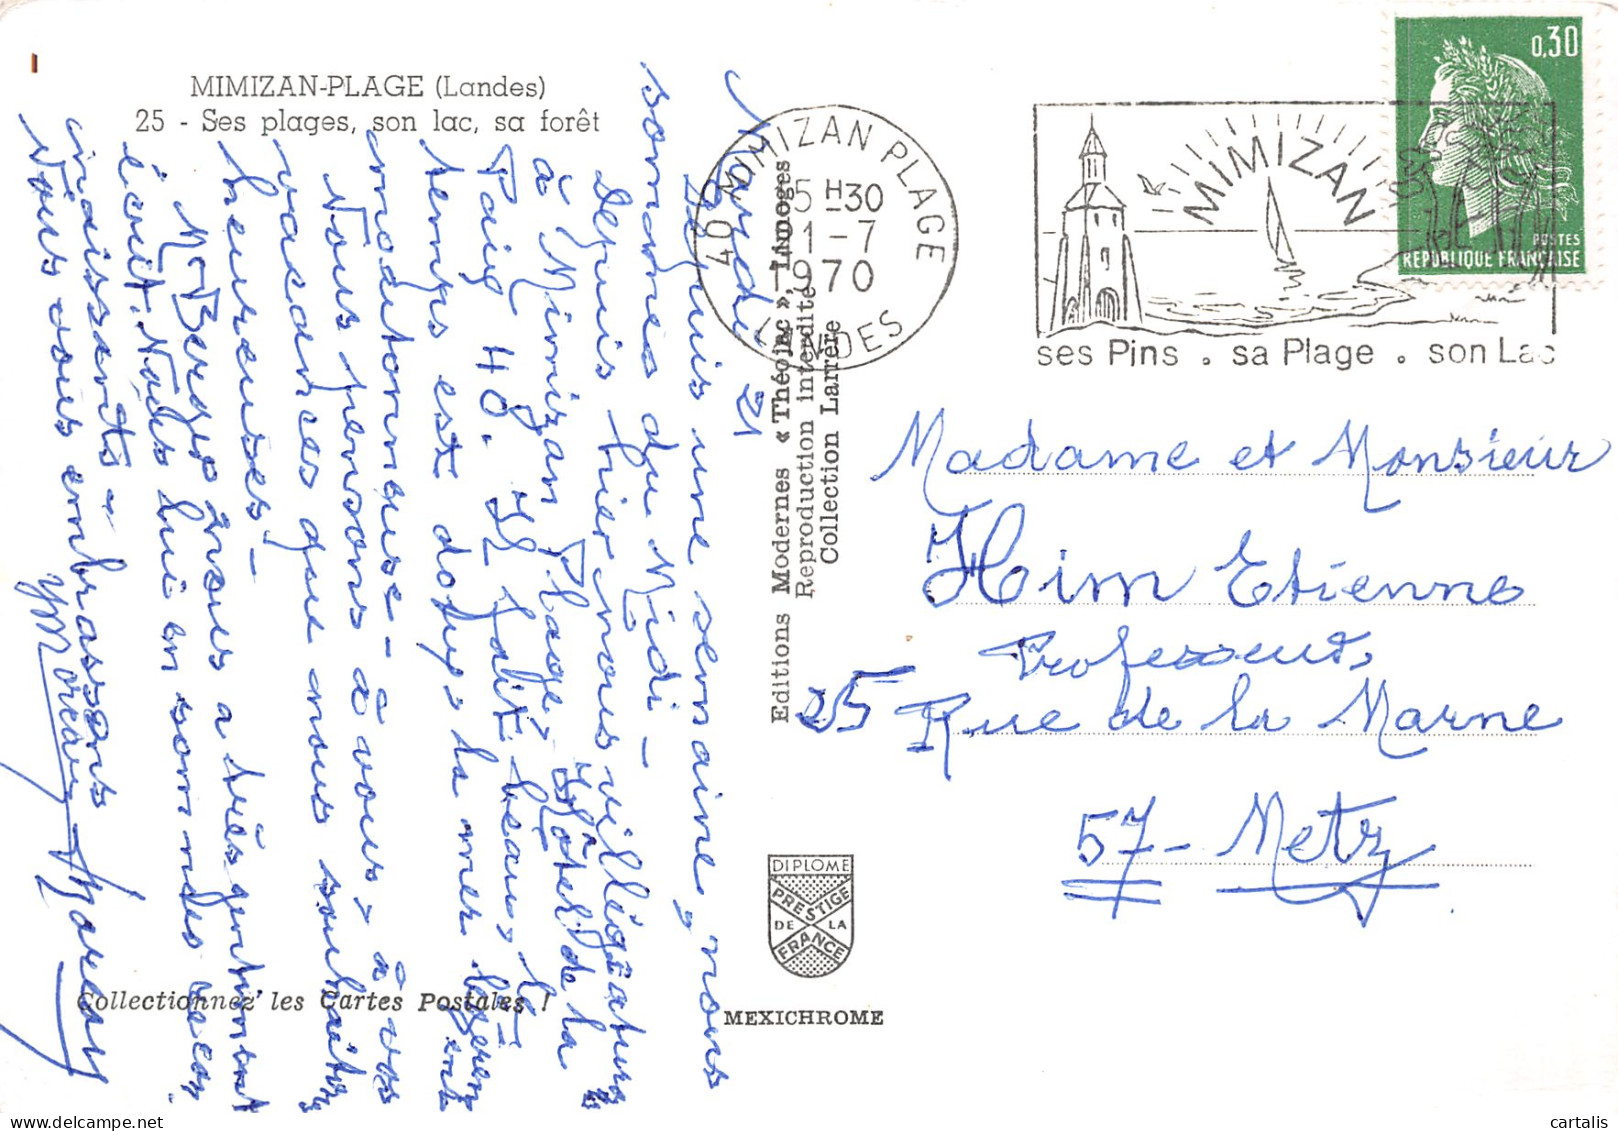 MIMIZAN-PLAGE (Landes)
25 - Ses plages, son lac, sa forêt
Mardi 21
Depuis une semaine, nous
sommes du Midi -
Depuis hier nous villégiaturons
à Mimizan Plage, Hôtel de la
Paix 40. Il fait beau, le
temps est doux, la mer légèrement
moutonneuse -
Nous pensons à vous, à vos
vacances que nous souhaitons
heureuses -
Mr Berger nous a très gentiment
écrit. Nous lui en sommes recon
naissants -
Nous vous embrassons
YMoreau Moreau
Collectionnez les Cartes Postales !
Editions Modernes « Théojac », Limoges
Reproduction interdite
Collection Larrière
DIPLOME
PRESTIGE
DE LA
FRANCE
MEXICHROME
40 MIMIZAN PLAGE
15 H 30
1-7
1970
LANDES
MIMIZAN
ses Pins . sa Plage . son Lac
0,30
POSTES
REPUBLIQUE FRANÇAISE
Madame et Monsieur
Him Etienne
Professeurs
25 Rue de la Marne
57 - Metz
cartalis
delcampe.net